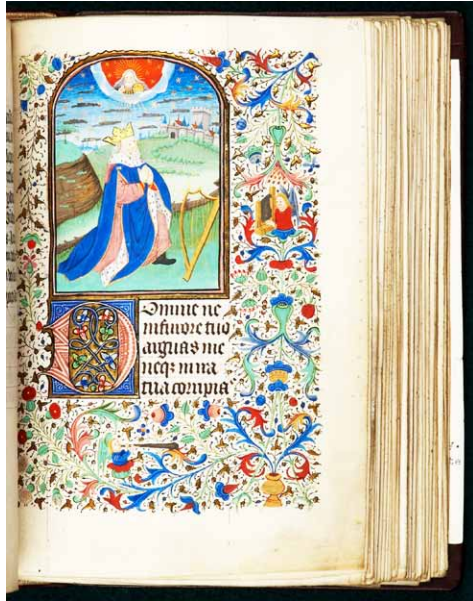 Domine ne
in furore tuo
arguas me
neqz in ira
tua corripia